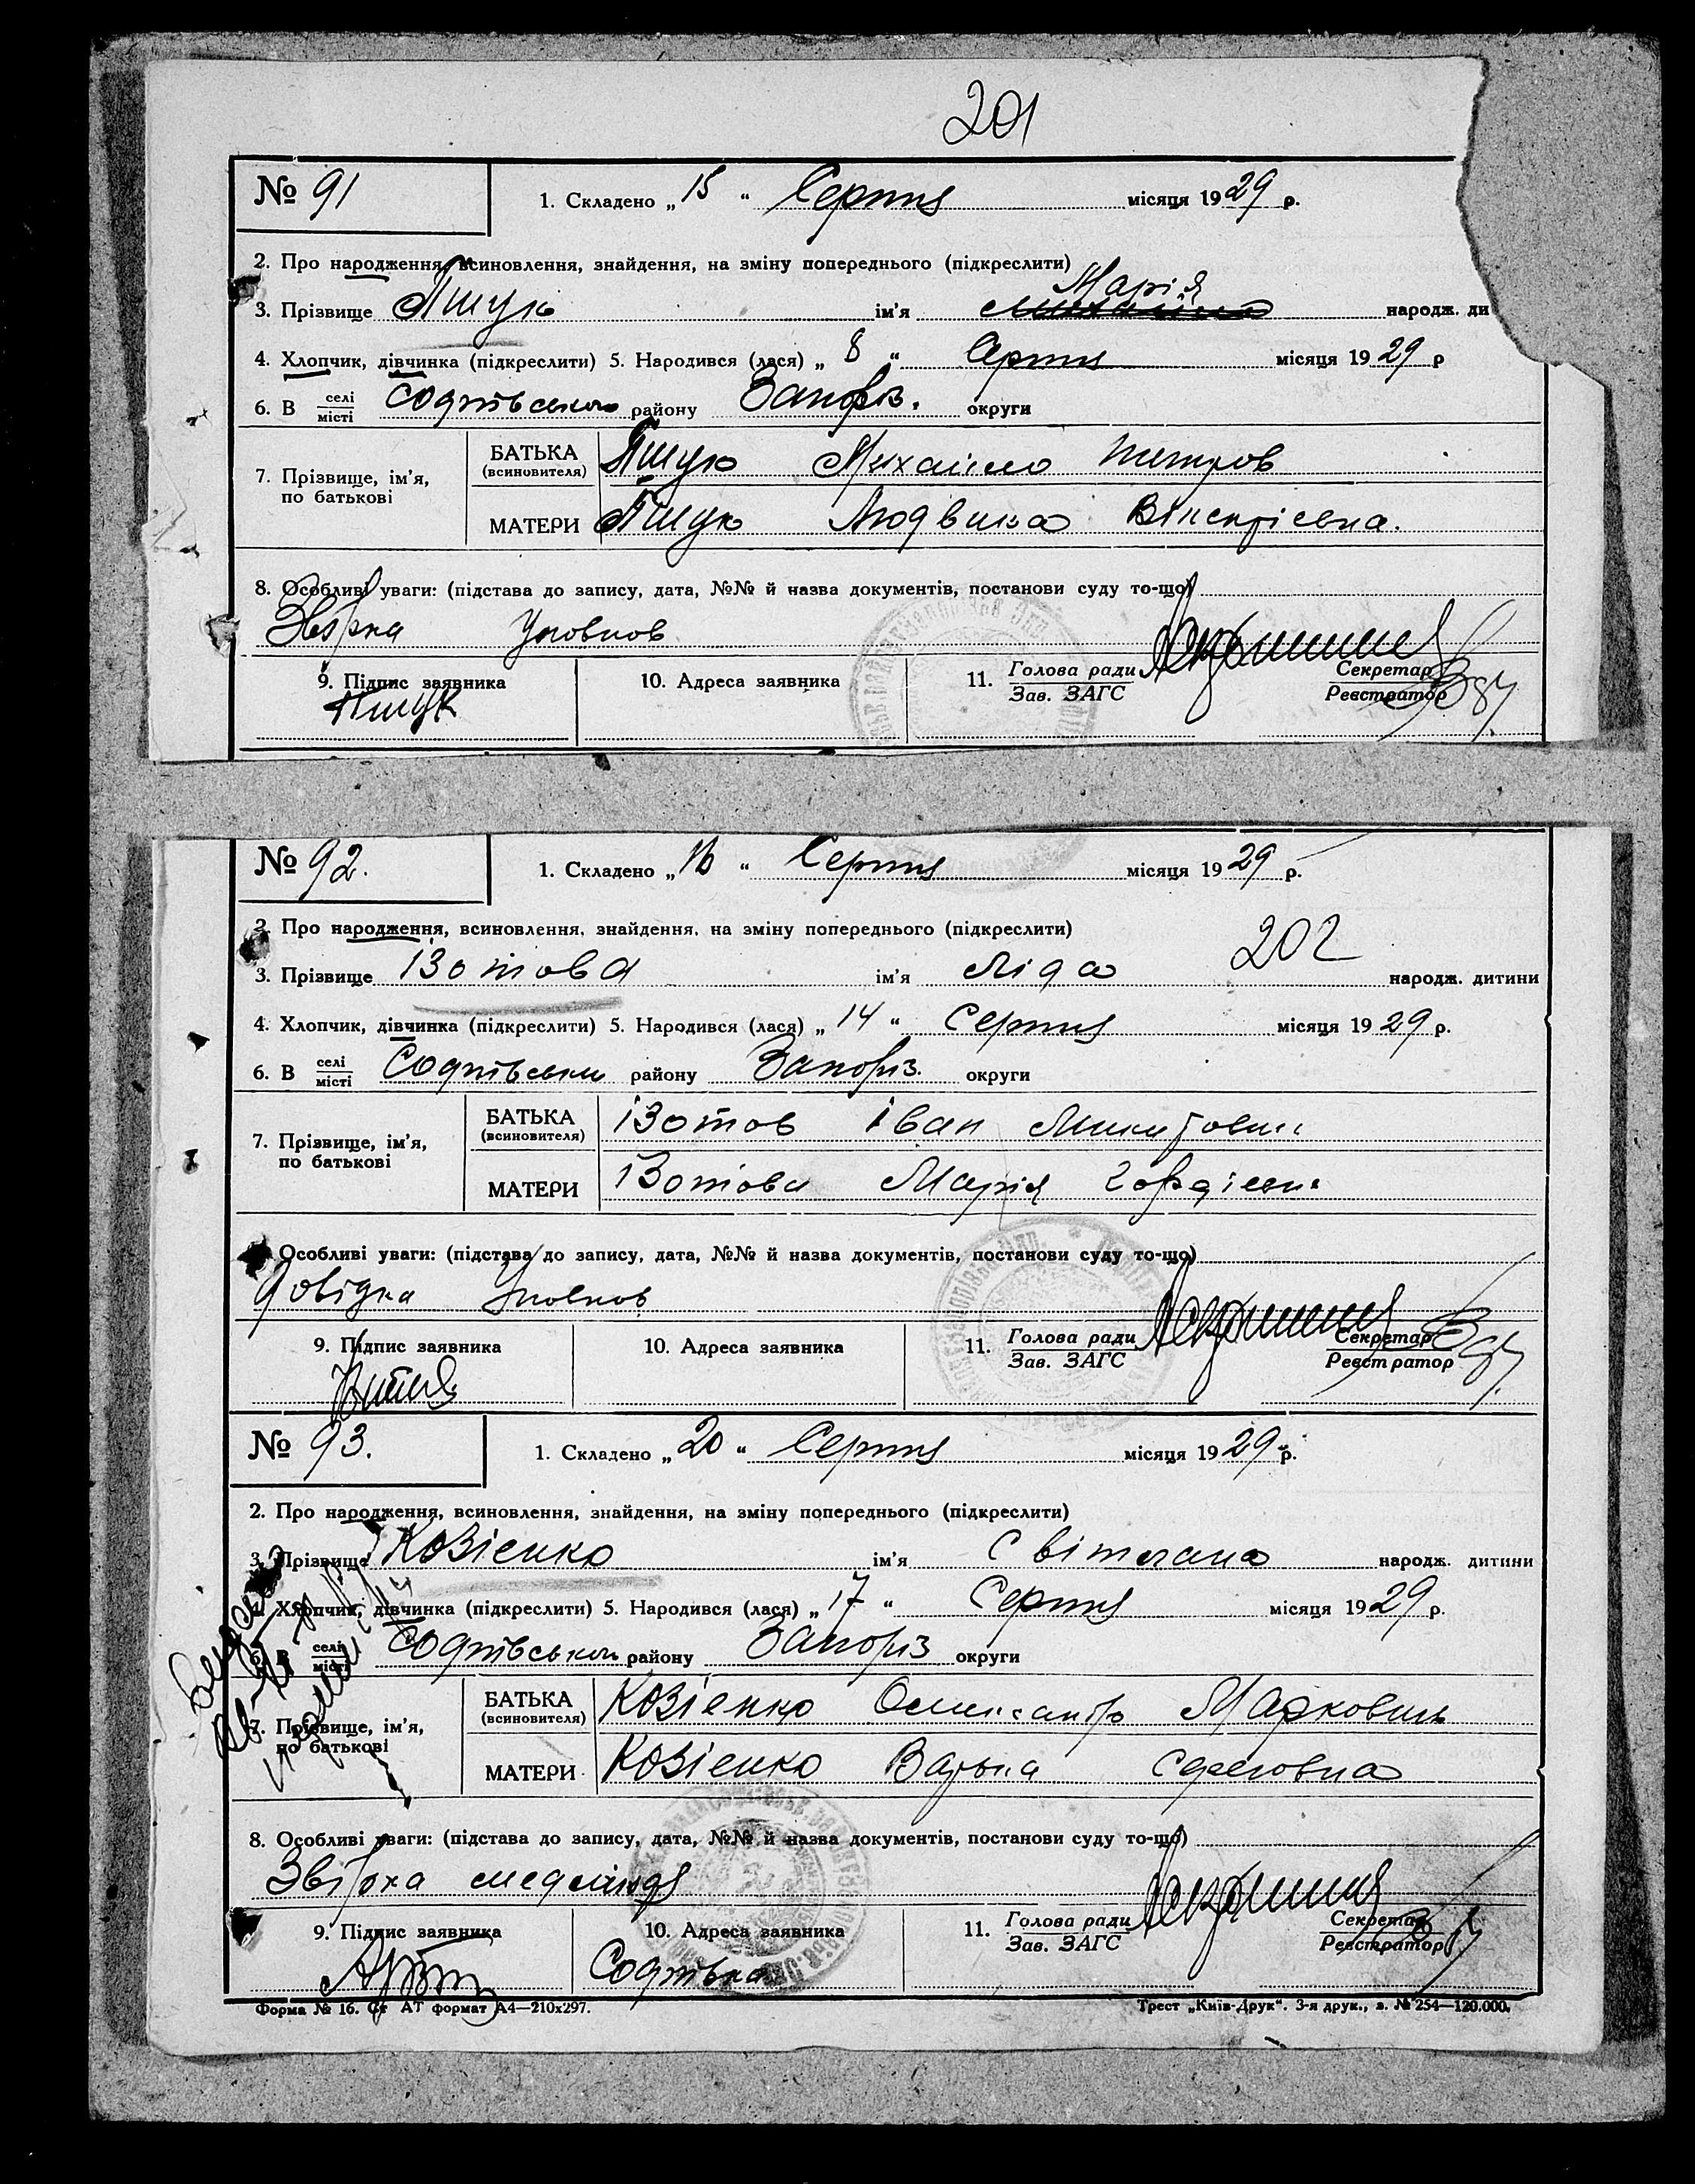 201
№ 91 1. Складено „ 15 “ Серпня місяця 1929 р.
2. Про народження, всиновлення, знайдення, на зміну попереднього (підкреслити)
Марія
3. Прізвище Пшук ім'я народж. ди
4. Хлопчик, дівчинка (підкреслити) 5. Народився (лася) „ 8 “ Серпня місяця 1929 р
6. В селі/місті Софтівського району Запоріз. округи
7. Прізвище, ім'я, по батькові
БАТЬКА (всиновителя) Пшук Михайло Петров
МАТЕРИ Пшук Людвика Вікентієвна.
8. Особливі уваги: (підстава до запису, дата, №№ й назва документів, постанови суду то-що)
9. Підпис заявника 10. Адреса заявника 11. Голова ради / Зав. ЗАГС Секретар / Реєстратор
Пшук
№ 92. 1. Складено „ 16 “ Серпня місяця 1929 р.
2. Про народження, всиновлення, знайдення, на зміну попереднього (підкреслити)
202
3. Прізвище Ізотова ім'я Ліда народж. дитини
4. Хлопчик, дівчинка (підкреслити) 5. Народився (лася) „ 14 “ Серпня місяця 1929 р.
6. В селі/місті району Запоріз. округи
7. Прізвище, ім'я, по батькові
БАТЬКА (всиновителя) Ізотов Іван Микитович
МАТЕРИ Ізотова Марія Гордієвна
Особливі уваги: (підстава до запису, дата, №№ й назва документів, постанови суду то-що)
Довідка
9. Підпис заявника 10. Адреса заявника 11. Голова ради / Зав. ЗАГС Секретар / Реєстратор
№ 93. 1. Складено „ 20 “ Серпня місяця 1929 р.
2. Про народження, всиновлення, знайдення, на зміну попереднього (підкреслити)
3. Прізвище Козієнко ім'я Світлана народж. дитини
4. Хлопчик, дівчинка (підкреслити) 5. Народився (лася) „ 17 “ Серпня місяця 1929 р.
6. В селі/місті району Запоріз округи
7. Прізвище, ім'я, по батькові
БАТЬКА (всиновителя) Козієнко Олександр Маркович
МАТЕРИ Козієнко
8. Особливі уваги: (підстава до запису, дата, №№ й назва документів, постанови суду то-що)
9. Підпис заявника 10. Адреса заявника 11. Голова ради / Зав. ЗАГС Секретар / Реєстратор
Форма № 16. Ст АТ формат А4—210х297. Трест „Київ-Друк“. 3-я друк., з. № 254—120.000.